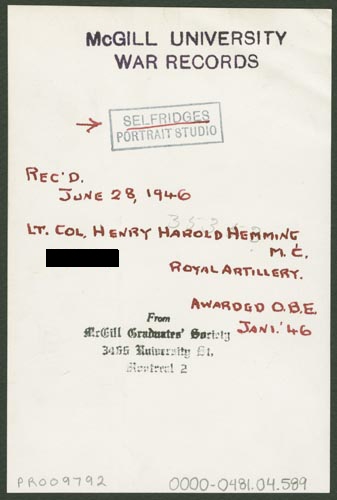 McGILL UNIVERSITY
WAR RECORDS
SELFRIDGES
PORTRAIT STUDIO
REC'D.
JUNE 28, 1946
LT. COL, HENRY HAROLD HEMMING
M.C.
ROYAL ARTILLERY.
AWARDED O.B.E.
JAN 1. '46
From
McGill Graduates' Society
3466 University St.
Montreal 2
PR009792
0000-0481.04.589